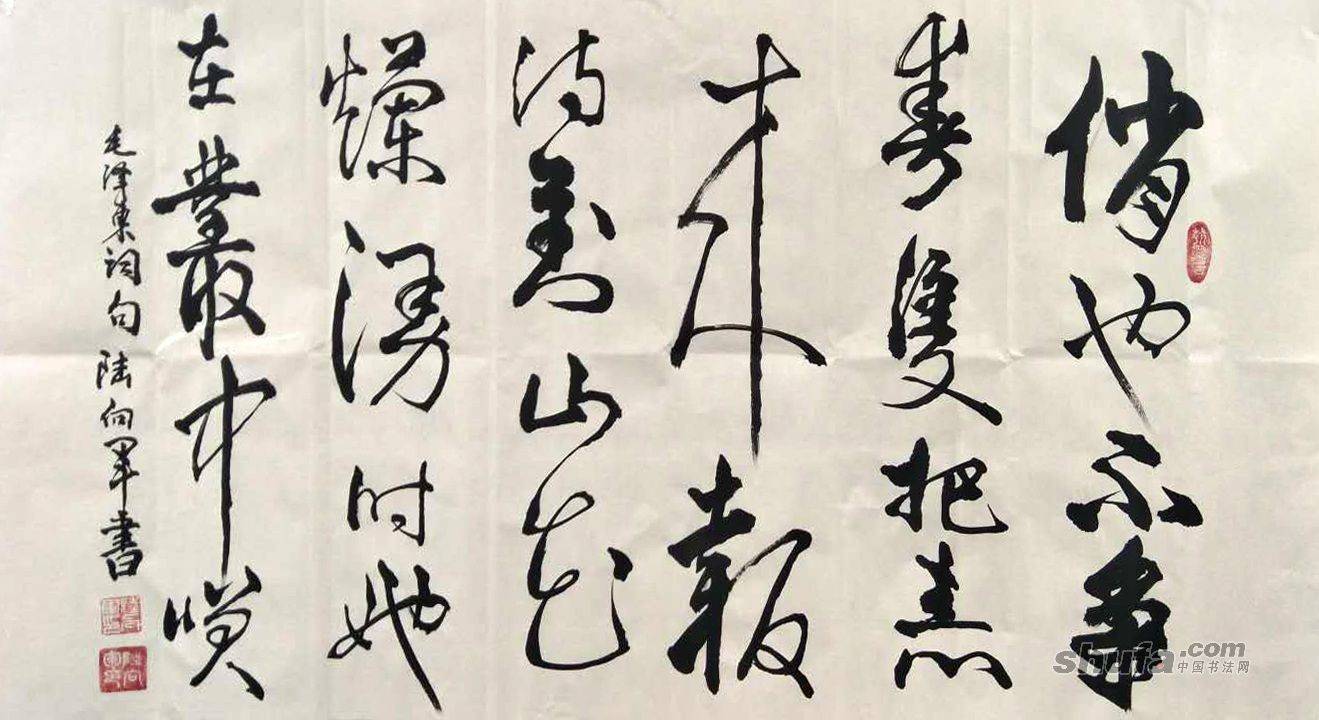 俏也不争
春隻把春
來報
待到山花
爛漫时她
在叢中咲
毛泽東词句 陆向军書
shufa.com
中国书法网